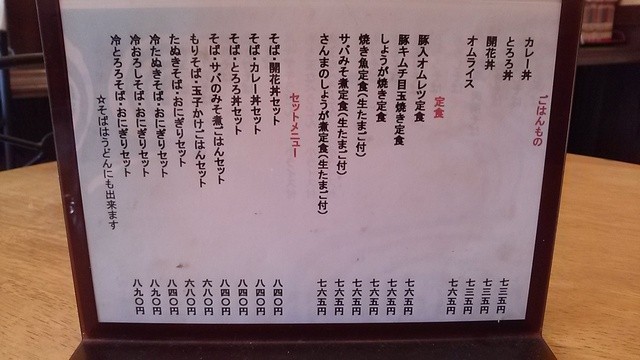 ごはんもの
カレー丼 七三五円
とろろ丼 七三五円
開花丼 七三五円
オムライス 七六五円
定食
豚入オムレツ定食 七六五円
豚キムチ目玉焼き定食 七六五円
しょうが焼き定食 七六五円
焼き魚定食(生たまご付) 七六五円
サバみそ煮定食(生たまご付) 七六五円
さんまのしょうが煮定食(生たまご付) 七六五円
セットメニュー
そば・開花丼セット 八四〇円
そば・カレー丼セット 八四〇円
そば・とろろ丼セット 八四〇円
そば・サバのみそ煮ごはんセット 八四〇円
もりそば・玉子かけごはんセット 六八〇円
たぬきそば・おにぎりセット 六八〇円
冷たぬきそば・おにぎりセット 八四〇円
冷おろしそば・おにぎりセット 八九〇円
冷とろろそば・おにぎりセット 八九〇円
☆そばはうどんにも出来ます